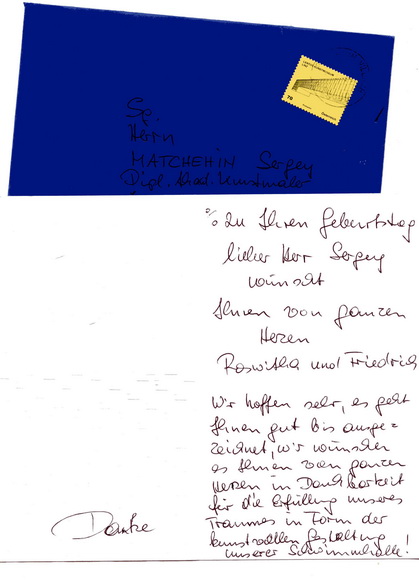 Sp.
Herrn
MATCHEHIN Sergey
Dipl. Akad. Kunstmaler
70
% Zu Ihren Geburtstag
lieber Herr Sergey
wünscht
Ihnen von ganzen
Herzen
Roswitha und Friedrich
Wir hoffen sehr, es geht
Ihnen gut bis ausge=
zeichnet, wir wünschen
es Ihnen von ganzen
Herzen in Dankbarkeit
für die Erfüllung unseres
Traumes in Form der
kunstvollen Gestaltung
unserer Schwimmhalle!
Danke